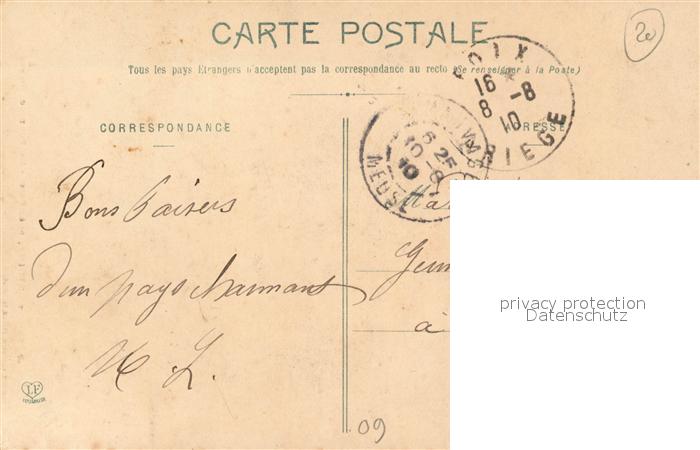 CARTE POSTALE
Tous les pays Étrangers n'acceptent pas la correspondance au recto (Se renseigner à la Poste)
2e
FOIX
16 *
8 -8
10
ARIÈGE
CORRESPONDANCE
ADRESSE
6 25
10 -8
10
MEUSE
Bons baisers
d'un pays charmant
à
LF
TOULOUSE
09
privacy protection
Datenschutz